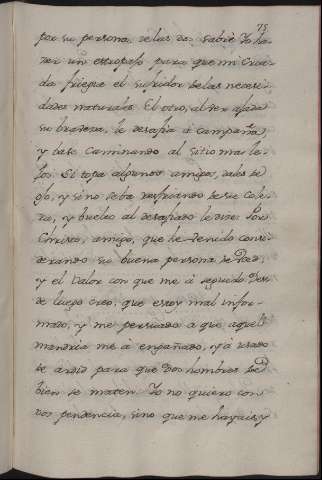 75
por su persona, de las de saber Yo ha-
zer un estropajo para que mi Cria-
da friegue el suzidor de las necesi-
dades naturales. El otro, al ver ajada
su braveza, le desafia à campaña
y vase Caminando al sitio mas le-
jos. Si topa algunos amigos, dales de
ojo, y sino se ba resfriando de su Cole-
ra, y buelve al desafiado le dize: Por
Christo, amigo, que he venido consi-
derando su buena persona de Vmd,
y el valor con que me à seguido. Des-
de luego creo, que estoy mal infor-
mado, y me persuado a que aquel
mandria me à engañado, y à usado
de ardid para que dos hombres de
bien se maten. Yo no quiero con
vos pendencia, sino que me hagais, y